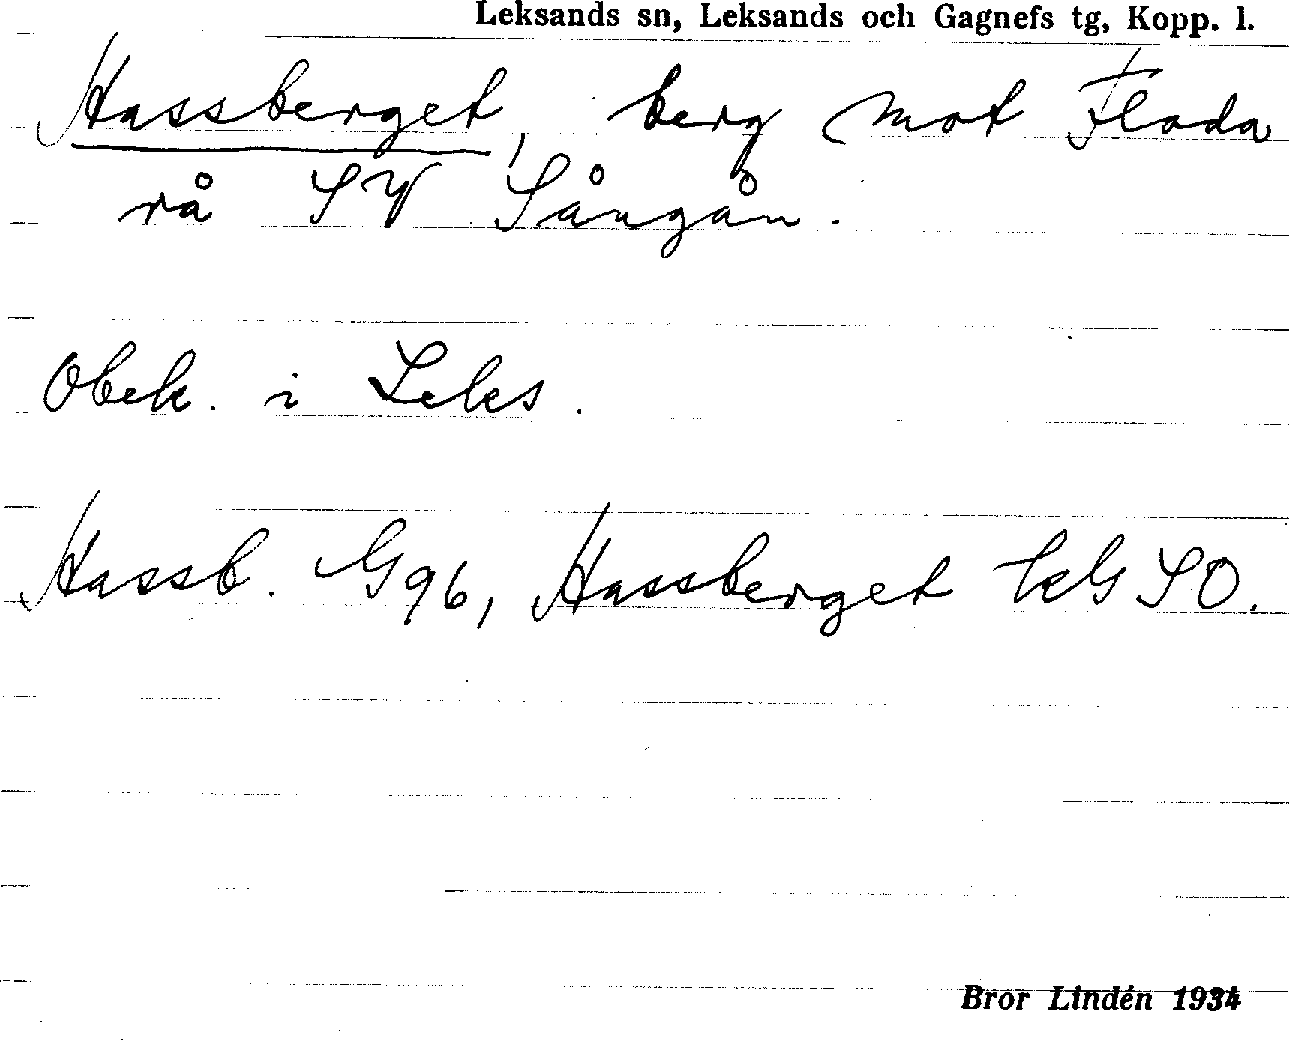 Leksands sn, Leksands och Gagnefs tg, Kopp. l.
Hassberget, berg mot Floda
rå SV Sångån.
Obek. i Leks.
Hassb. G96, Hassberget kG SO.
Bror Lindén 1934